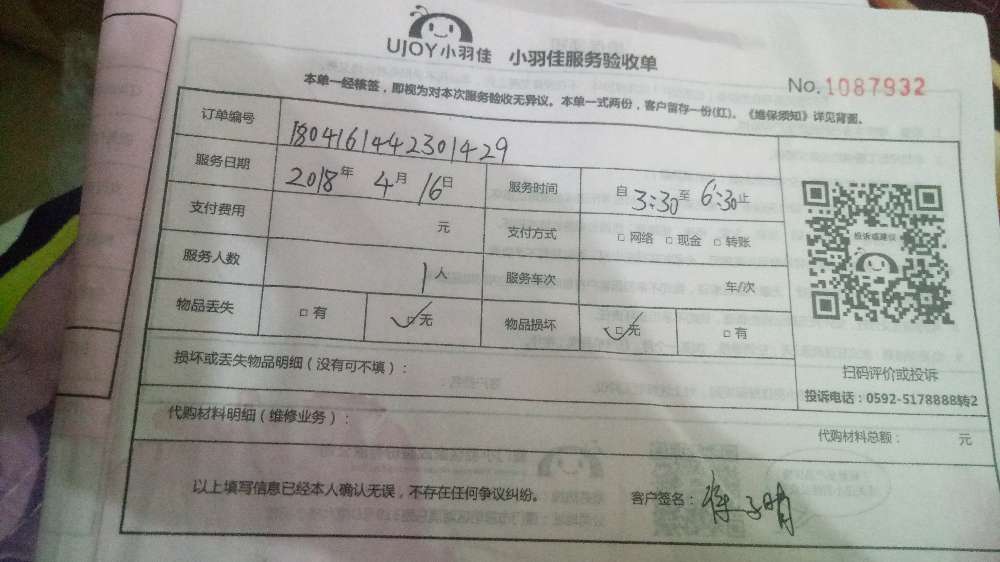 UJOY小羽佳 小羽佳服务验收单
No.1087932
本单一经核签，即视为对本次服务验收无异议。本单一式两份，客户留存一份(红)。《维保须知》详见背面。
订单编号 1804161442301429
服务日期 2018年 4月 16日 服务时间 自 3:30 至 6:30 止
支付费用 元 支付方式 □ 网络 □ 现金 □ 转账
服务人数 1人 服务车次 车/次
物品丢失 □ 有 ✓□ 无 物品损坏 ✓□ 无 □ 有
投诉或建议
扫码评价或投诉
投诉电话：0592-5178888转2
损坏或丢失物品明细（没有可不填）：
代购材料明细（维修业务）：
代购材料总额： 元
以上填写信息已经本人确认无误，不存在任何争议纠纷。 客户签名：